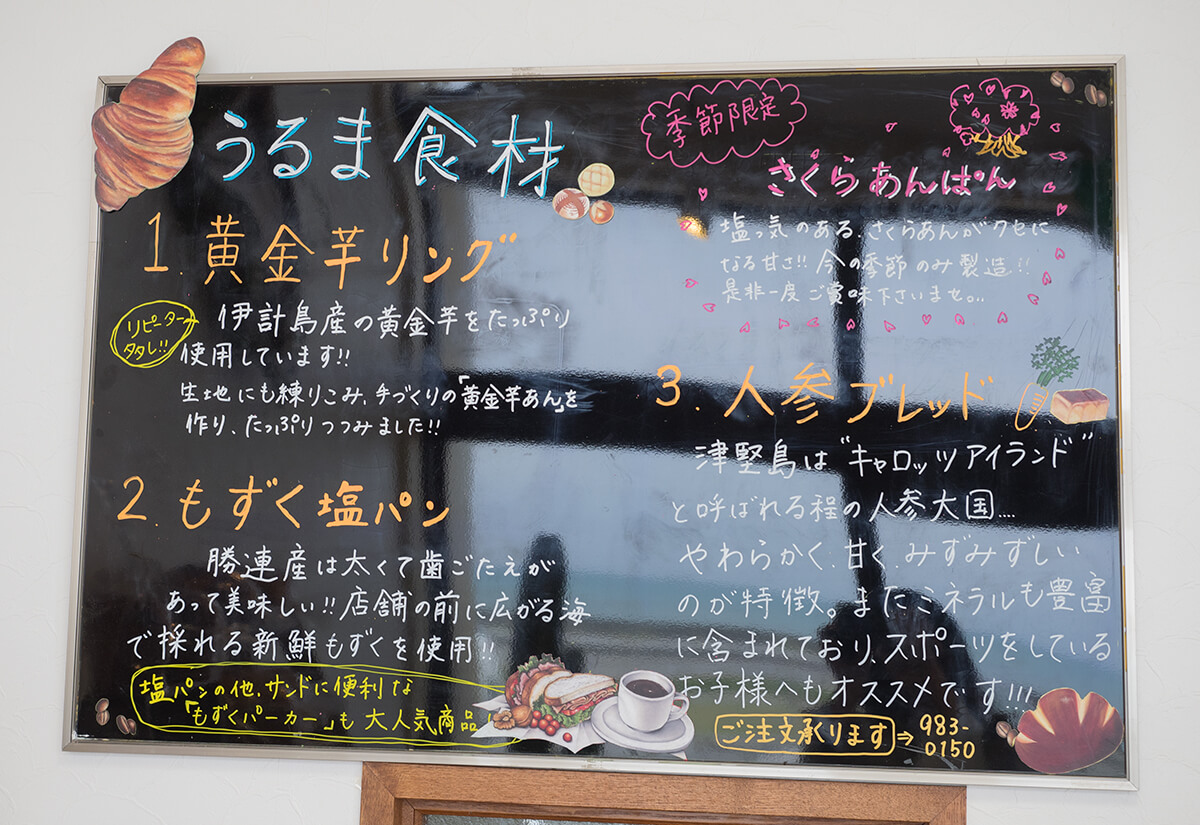 うるま食材
1.黄金芋リング
リピーター
タタし!!
伊計島産の黄金芋をたっぷり
使用しています!!
生地にも練りこみ、手づくりの「黄金芋あん」を
作り、たっぷりつつみました!!
2.もずく塩パン
勝連産は太くて歯ごたえが
あって美味しい!!店舗の前に広がる海
で採れる新鮮もずくを使用!!
塩パンの他、サンドに便利な
「もずくバーカー」も大人気商品!
季節限定
さくらあんぱん
塩っ気のある、さくらあんがクセに
なる甘さ!!今の季節のみ製造!!
是非一度ご賞味下さいませ。..
3.人参ブレッド
津堅島は"キャロッツアイランド"
と呼ばれる程の人参大国....
やわらかく、甘く、みずみずしい
のが特徴。またミネラルも豊富
に含まれており、スポーツをしている
お子様へもオススメです!!!
ご注文承ります⇒983-
0150